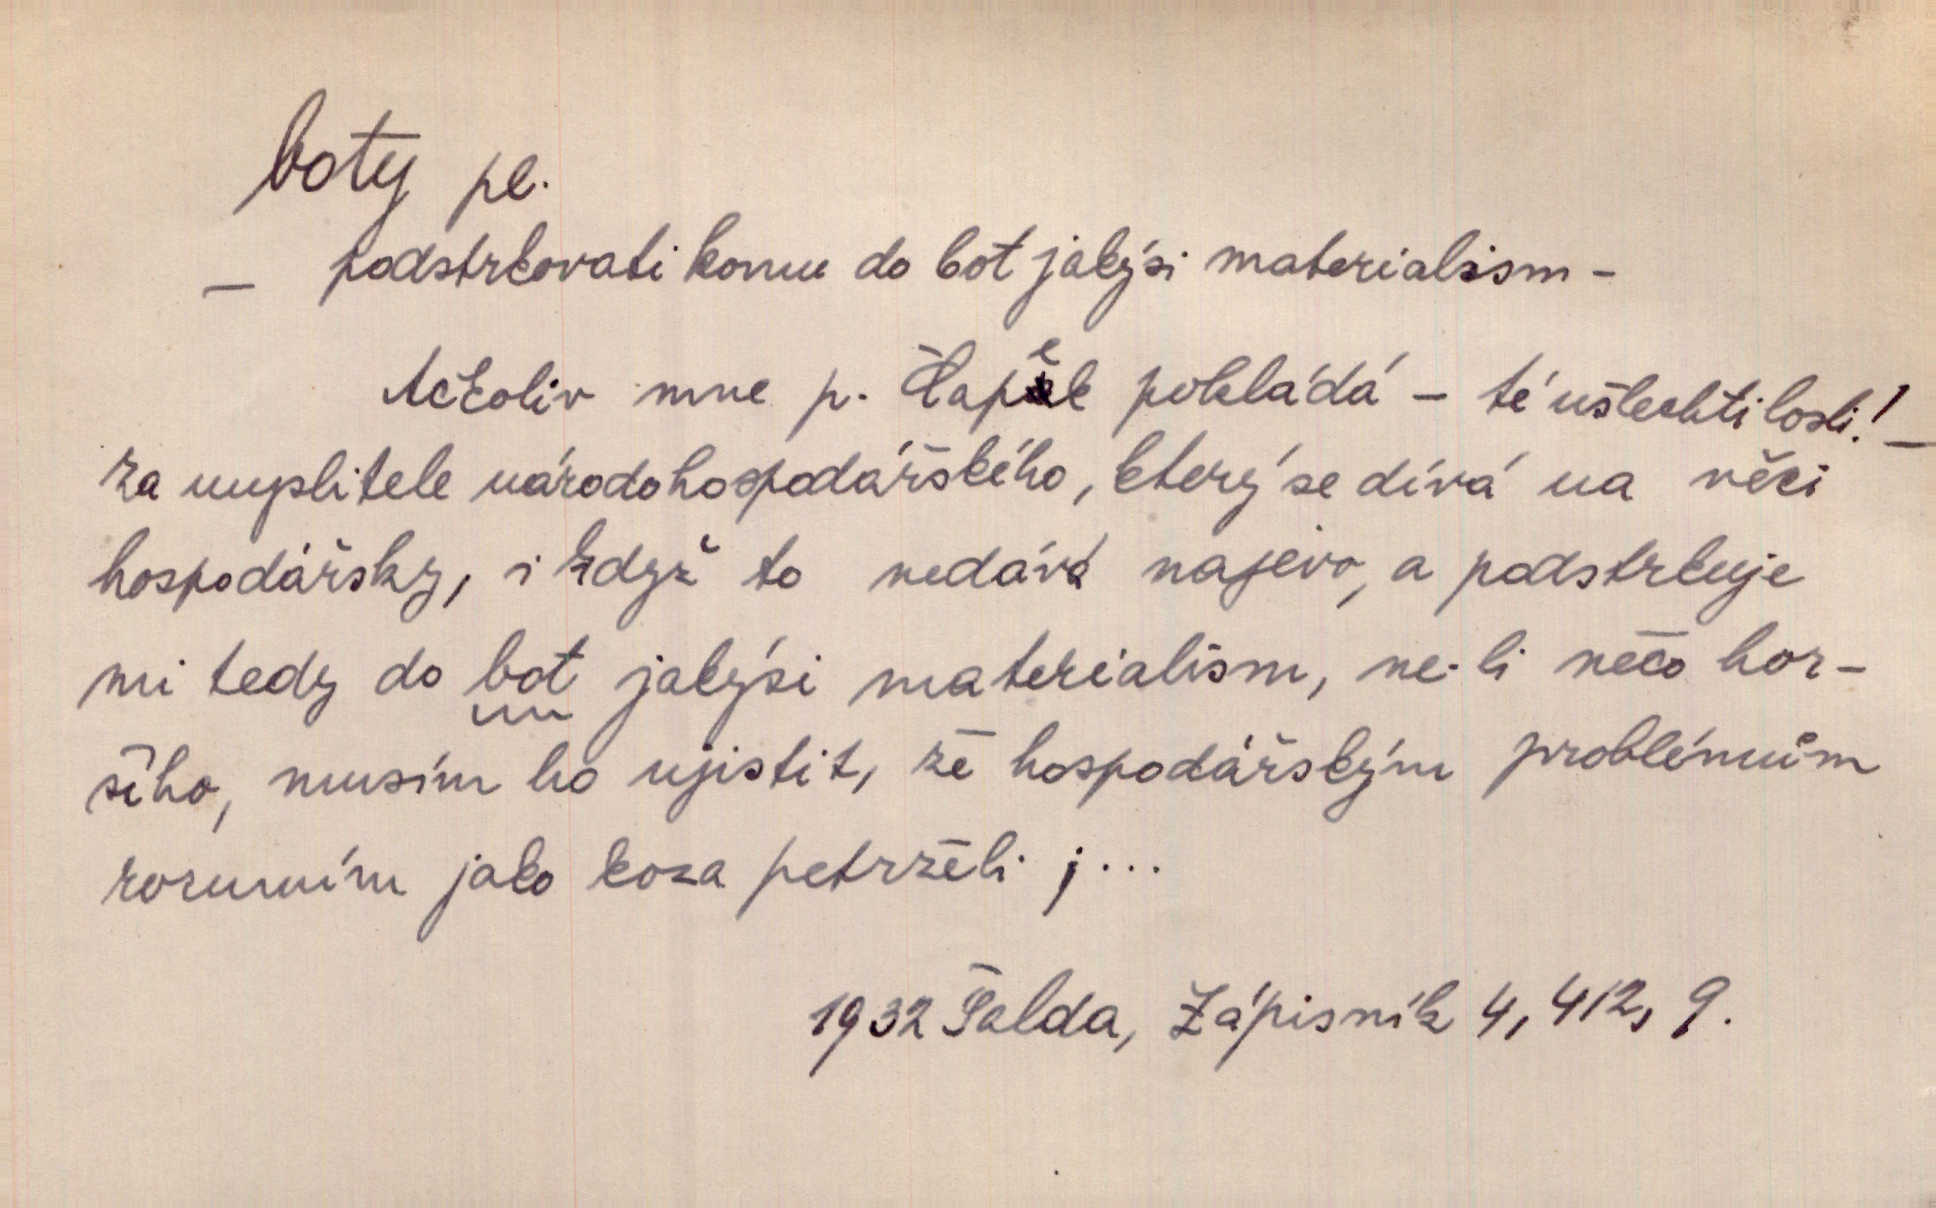 boty pl.
— podstrkovati komu do bot jakýsi materialism –
Ačkoliv mne p. Čapek pokládá – té ušlechtilosti! –
za myslitele národohospodářského, který se dívá na věci
hospodářsky, i když to nedává najevo, a podstrkuje
mi tedy do bot jakýsi materialism, ne-li něco hor-
šího, musím ho ujistit, že hospodářským problémům
rozumím jako koza petrželi ; ...
1932 Šalda, Zápisník 4, 412, 9.